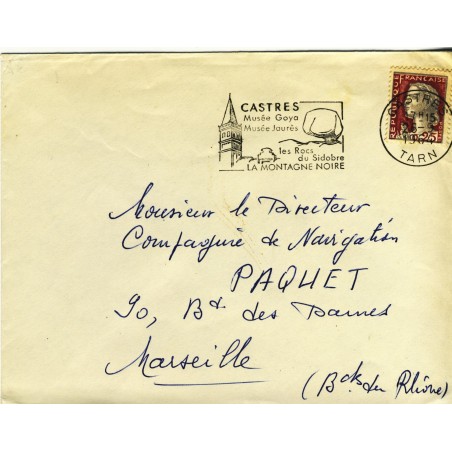 CASTRES
Musée Goya
Musée Jaurès
les Rocs
du Sidobre
LA MONTAGNE NOIRE
REPUBLIQUE FRANÇAISE
0,25
CASTRES
TARN
Monsieur le Directeur
Compagnie de Navigation
PAQUET
90, Bd des Dames
Marseille
(Bches du Rhône)